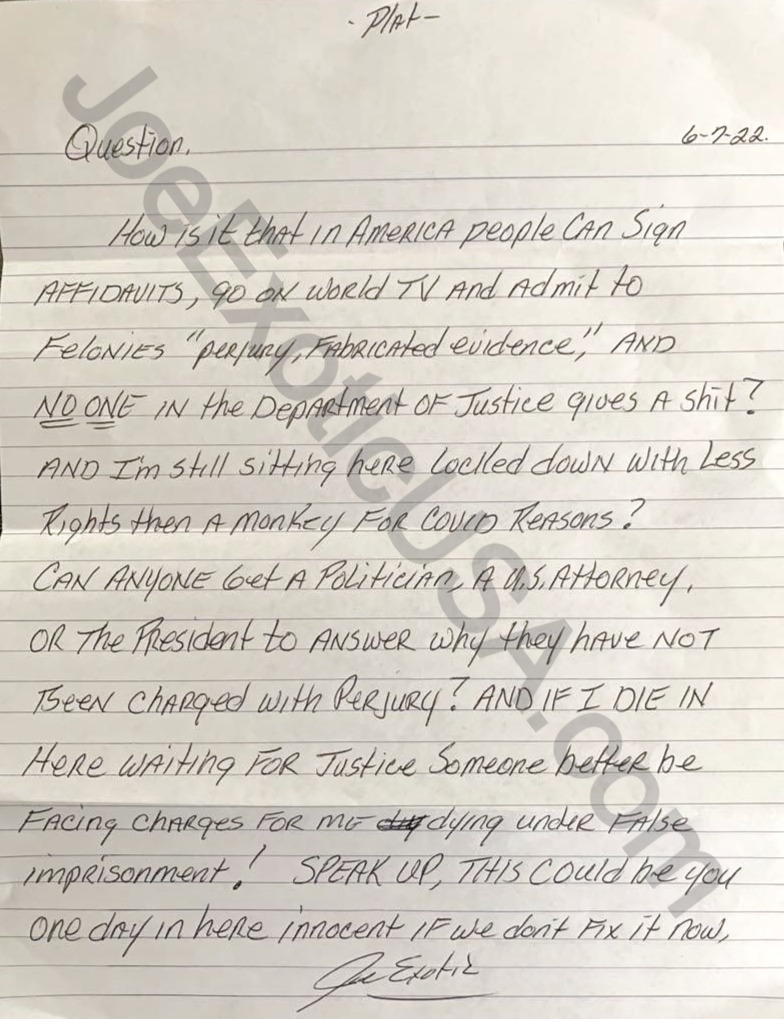 - Plat -
Question,
6-7-22.
How is it that in America people can sign
affidavits, go on world TV and admit to
felonies "perjury, fabricated evidence," and
NO ONE in the Department of Justice gives a shit?
And I'm still sitting here locked down with less
rights then a monkey for COVID reasons?
Can anyone get a politician, a U.S. Attorney,
or the President to answer why they have not
been charged with perjury? And if I die in
here waiting for justice someone better be
facing charges for me dying under false
imprisonment! SPEAK UP, this could be you
one day in here innocent if we don't fix it now,
Joe Exotic
JoeExoticUSA.com